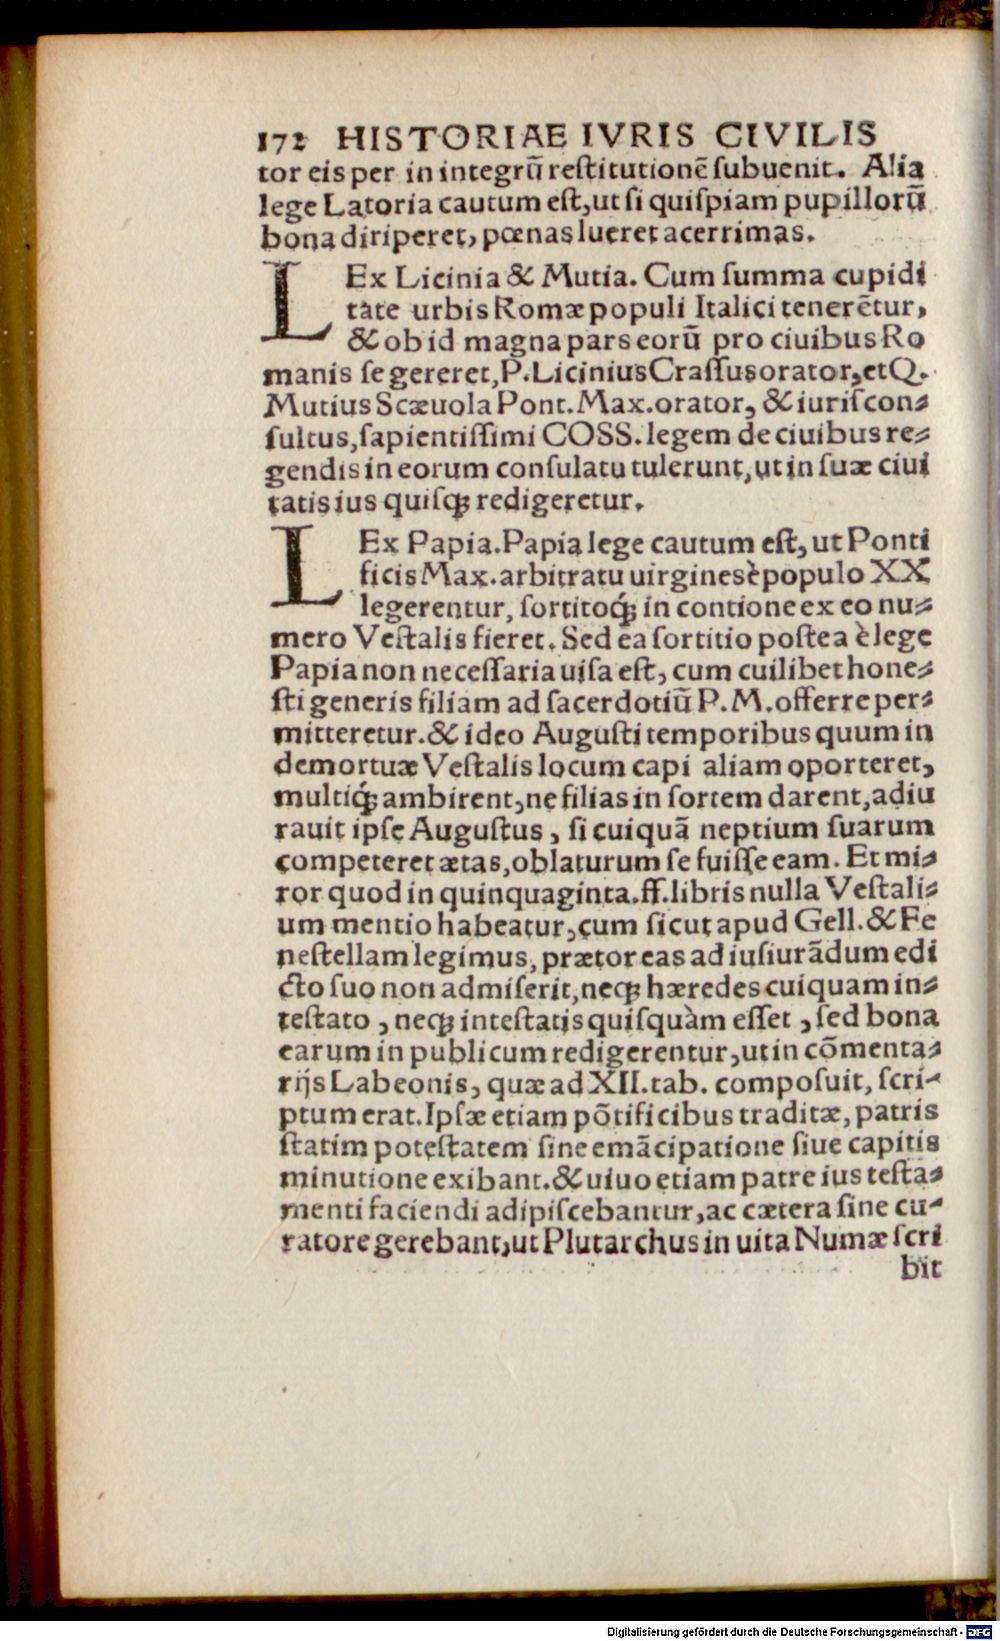 172 HISTORIAE IVRIS CIVILIS
tor eis per in integrũ restitutionẽ subuenit. Alia
lege Latoria cautum est, ut si quispiam pupillorũ
bona diriperet, pœnas lueret acerrimas.
LEx Licinia & Mutia. Cum summa cupidi
tate urbis Romæ populi Italici tenerẽtur,
& ob id magna pars eorũ pro ciuibus Ro
manis se gereret, P. Licinius Crassus orator, et Q.
Mutius Scæuola Pont. Max. orator, & iuriscon⸗
sultus, sapientissimi COSS. legem de ciuibus re⸗
gendis in eorum consulatu tulerunt, ut in suæ ciui
tatis ius quisq̃ redigeretur.
LEx Papia. Papia lege cautum est, ut Ponti
ficis Max. arbitratu uirgines è populo XX
legerentur, sortitoq́ꝫ in contione ex eo nu⸗
mero Vestalis fieret. Sed ea sortitio postea è lege
Papia non necessaria uisa est, cum cuilibet hone⸗
sti generis filiam ad sacerdotiũ P. M. offerre per⸗
mitteretur. & ideo Augusti temporibus quum in
demortuæ Vestalis locum capi aliam oporteret,
multiq́ꝫ ambirent, ne filias in sortem darent, adiu
rauit ipse Augustus, si cuiquã neptium suarum
competeret ætas, oblaturum se fuisse eam. Et mi⸗
ror quod in quinquaginta. ff. libris nulla Vestali⸗
um mentio habeatur, cum sicut apud Gell. & Fe
nestellam legimus, prætor eas ad iusiurãdum edi
cto suo non admiserit, neqꝫ hæredes cuiquam in⸗
testato, neqꝫ intestatis quisquàm esset, sed bona
earum in publicum redigerentur, ut in cõmenta⸗
rijs Labeonis, quæ ad XII. tab. composuit, scri⸗
ptum erat. Ipsæ etiam põtificibus traditæ, patris
statim potestatem sine emãcipatione siue capitis
minutione exibant. & uiuo etiam patre ius testa⸗
menti faciendi adipiscebantur, ac cætera sine cu⸗
ratore gerebant, ut Plutarchus in uita Numæ scri
bit
Digitalisierung gefördert durch die Deutsche Forschungsgemeinschaft - DFG